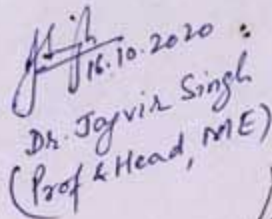 16.10.2020
Dr. Jayvir Singh
(Prof & Head, ME)